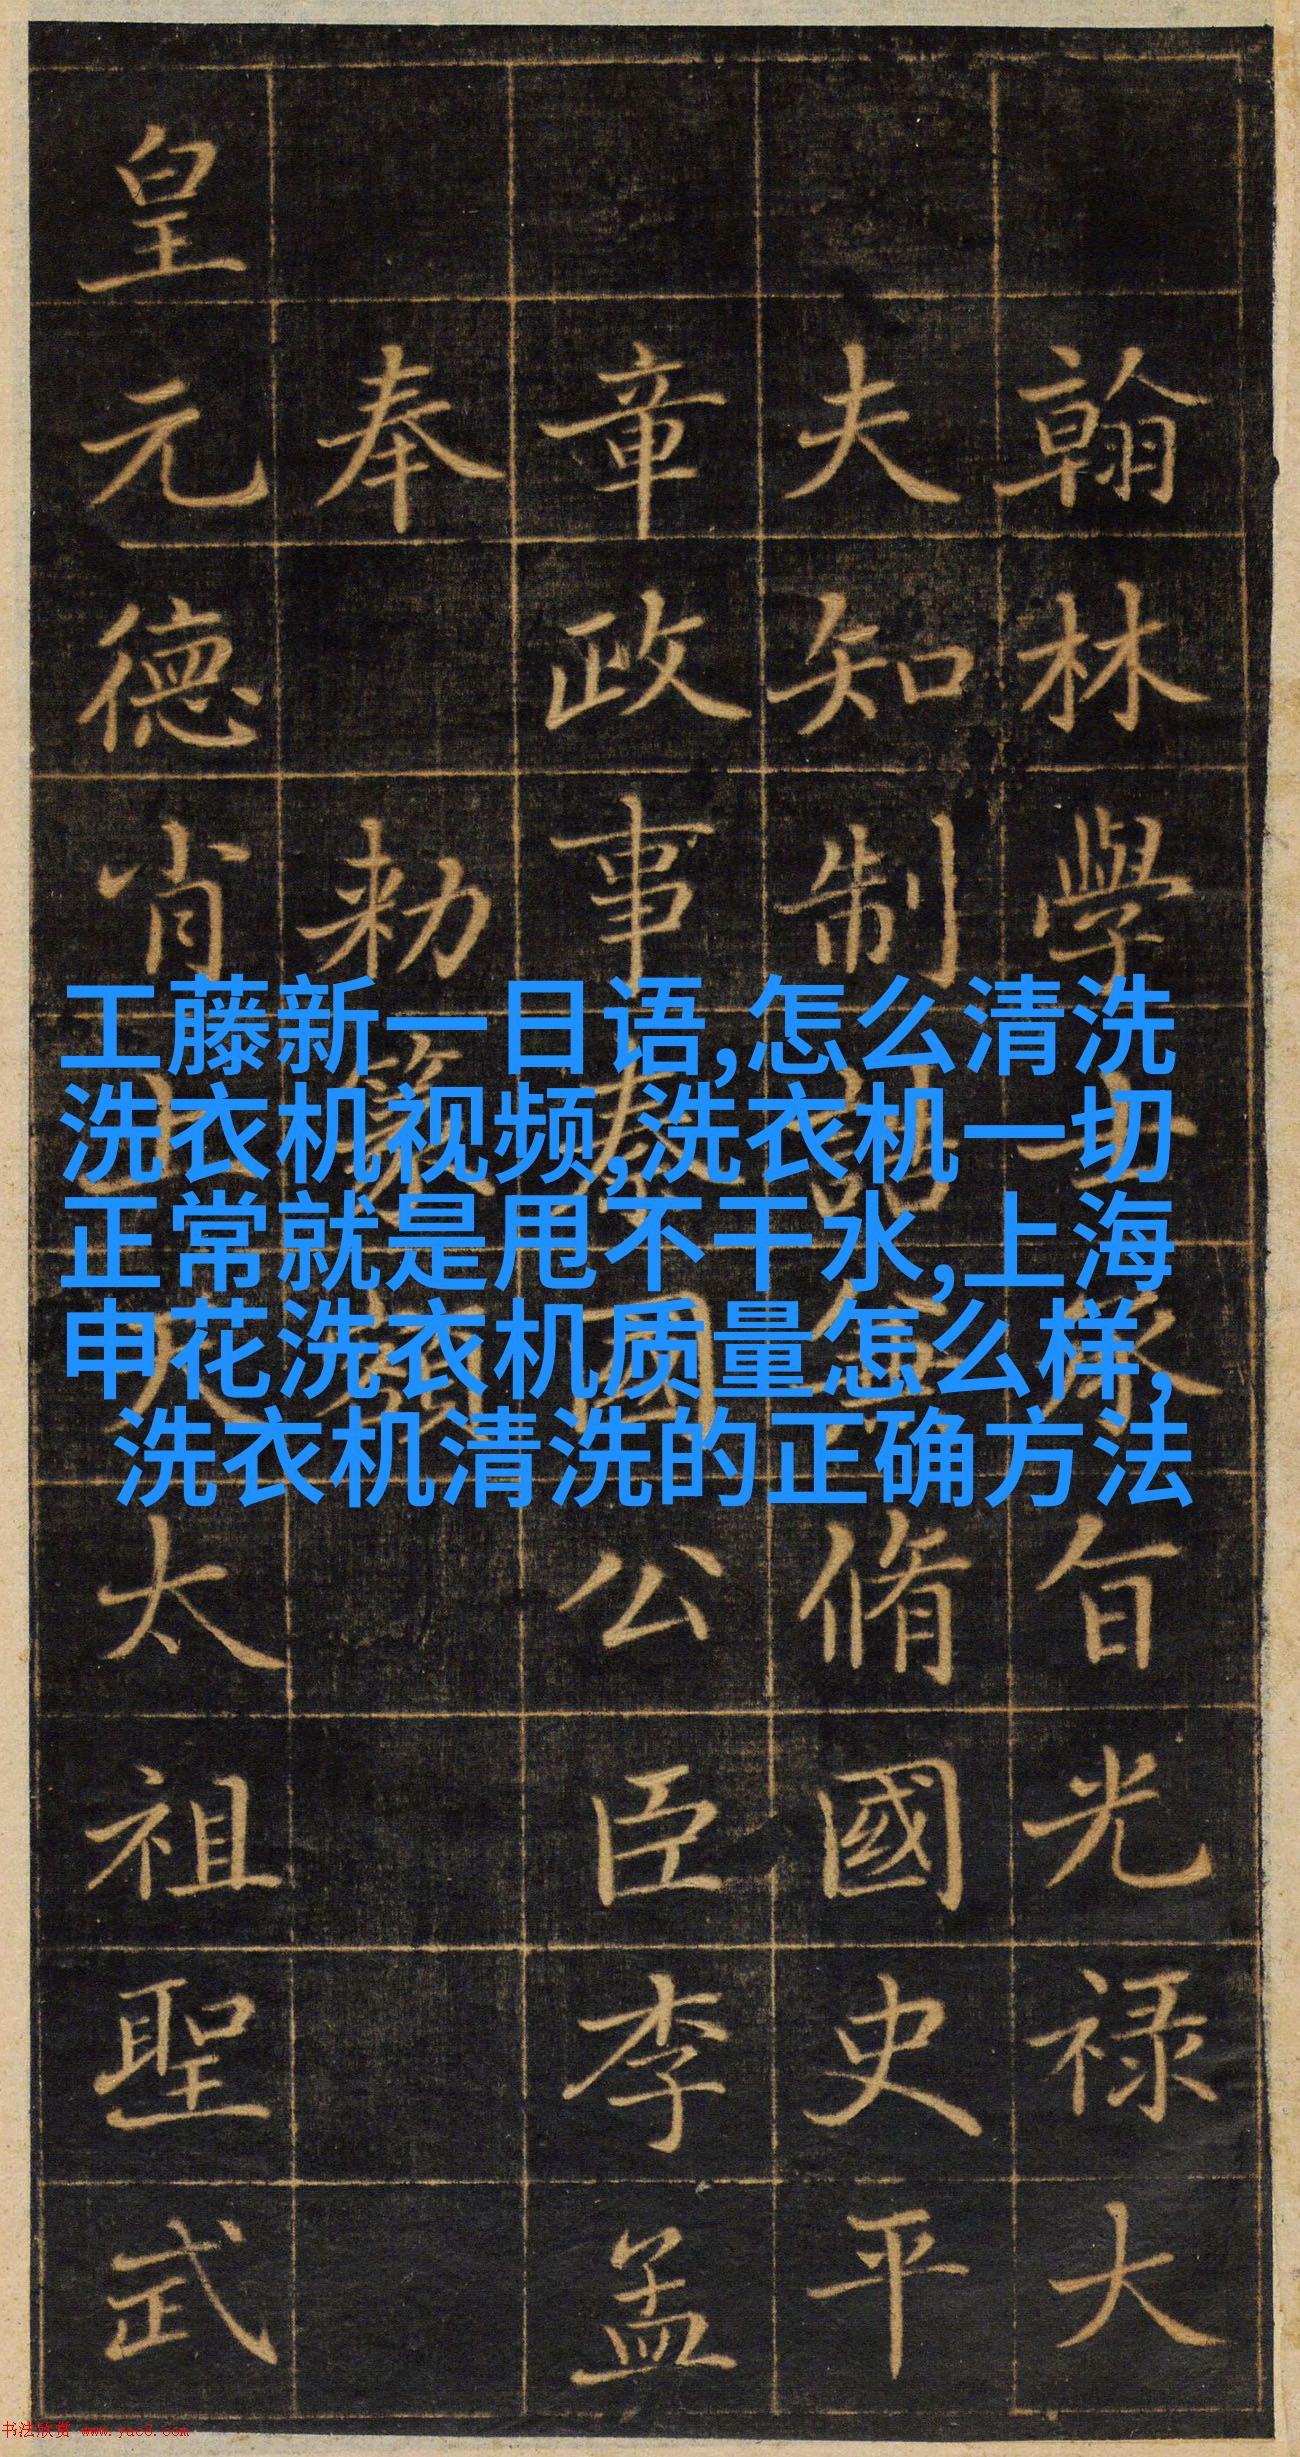 翰林學士承旨光禄大
夫知制誥兼脩國史平
章政事秦國公臣李孟
奉勑篆額
皇元德肖上天太祖聖武
工藤新一日语,怎么清洗
洗衣机视频,洗衣机一切
正常就是甩不干水,上海
申花洗衣机质量怎么样,
洗衣机清洗的正确方法
书法欣赏 www.yac8.com